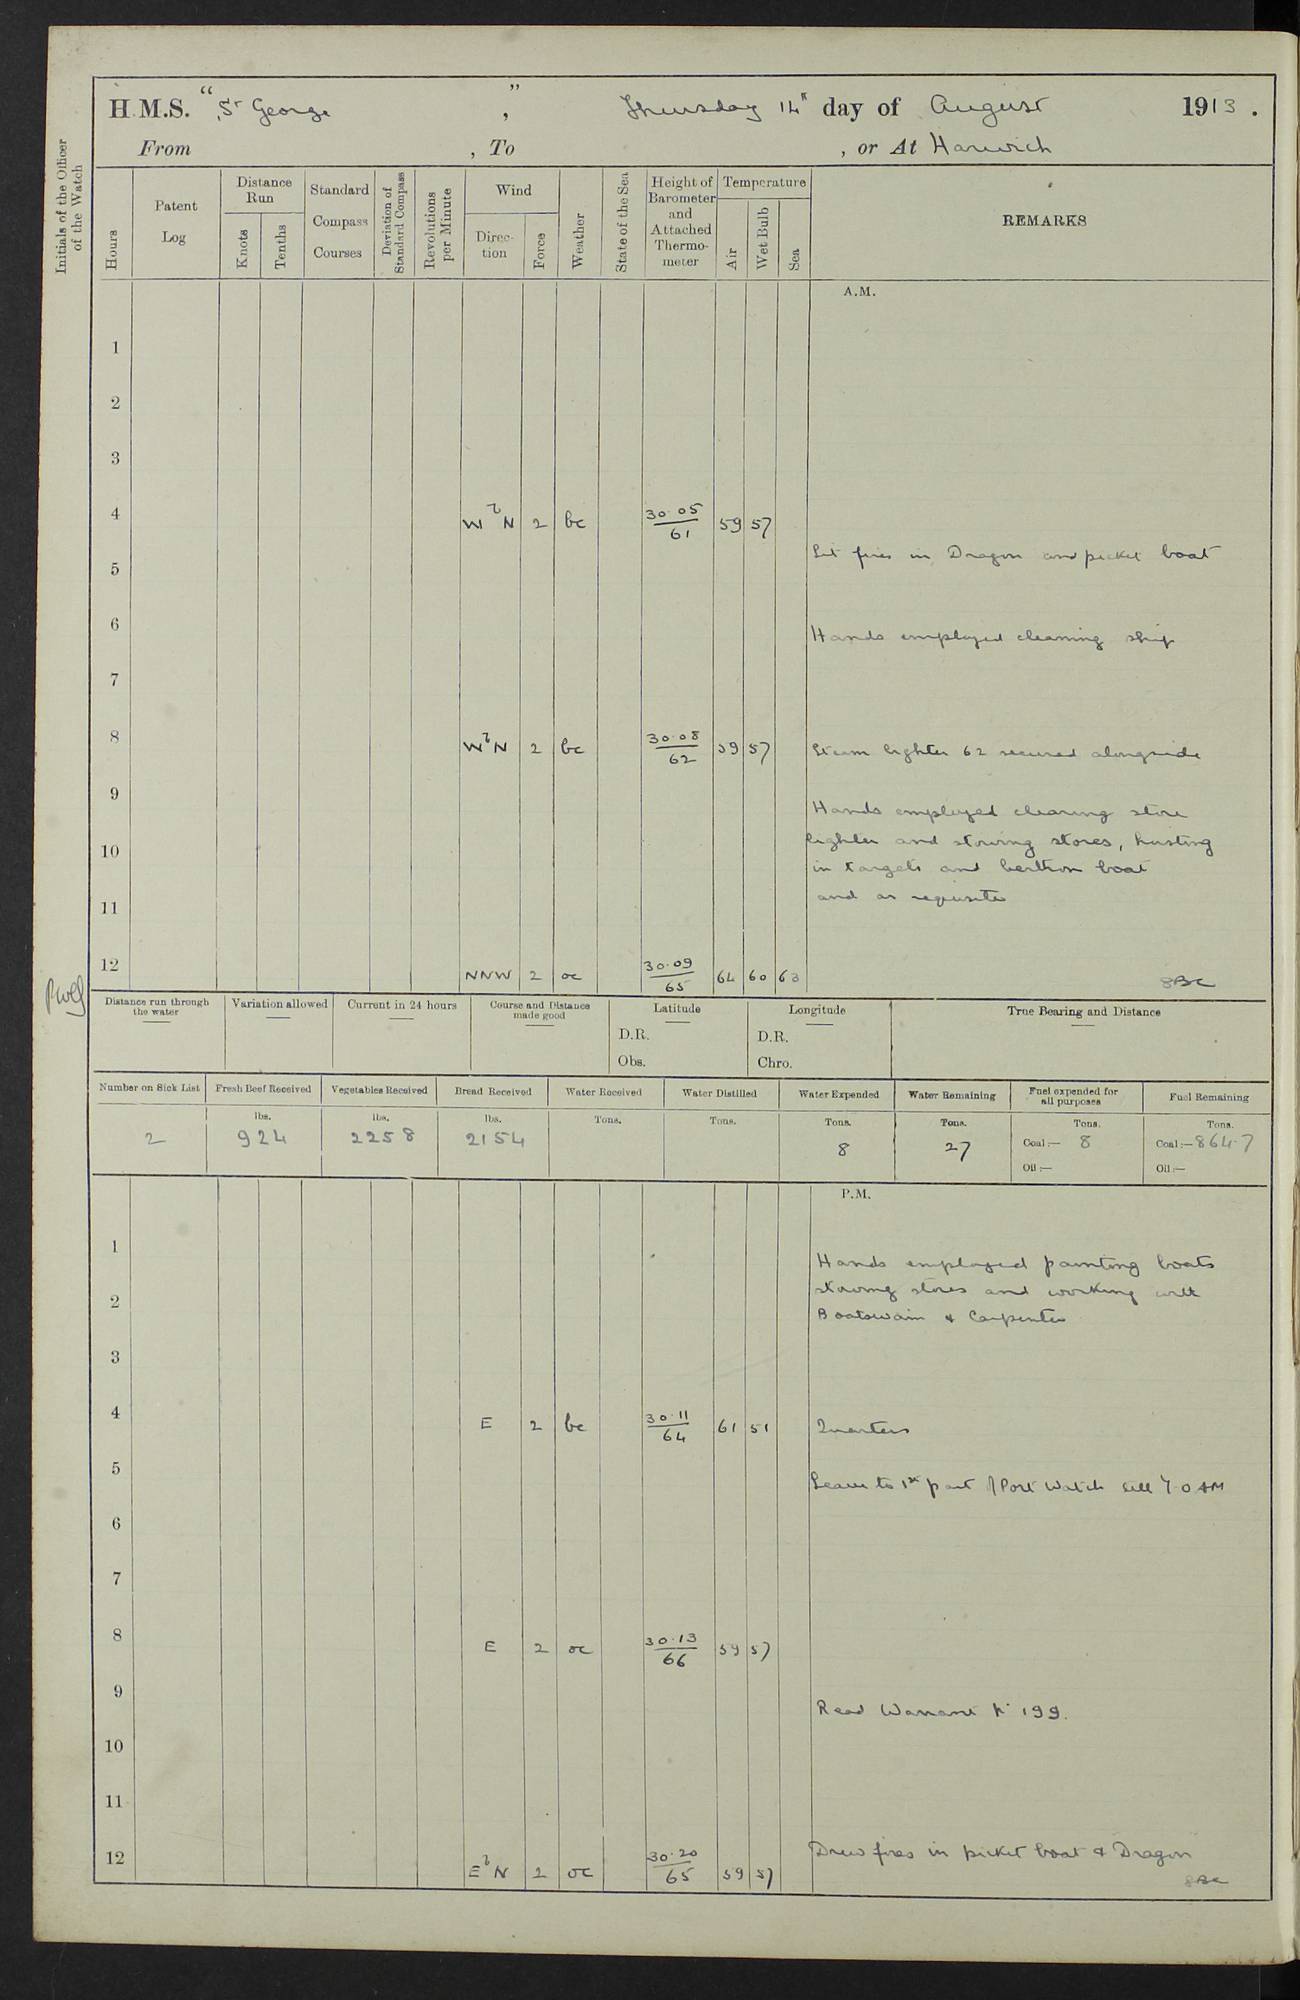 H.M.S. "St George", Thursday 14th day of August 1913.
From , To , or At Harwich
Initials of the Officer of the Watch
Hours
Patent Log
Distance Run
Knots
Tenths
Standard Compass Courses
Deviation of Standard Compass
Revolutions per Minute
Wind
Direction
Force
Weather
State of the Sea
Height of Barometer and Attached Thermometer
Temperature
Air
Wet Bulb
Sea
REMARKS
A.M.
1
2
3
4 WbN 2 bc 30.05 61 59 57
Lit fires in Dragon and picket boat
5
6
Hands employed cleaning ship
7
8 WbN 2 bc 30.08 62 59 57 Steam lighter 62 secured alongside
9
Hands employed clearing store
lighter and stowing stores, hoisting
10
in targets and berthon boat
and as requisite
11
12 NNW 2 oc 30.09 65 64 60 63
Distance run through the water
Variation allowed
Current in 24 hours
Course and Distance made good
Latitude
D.R.
Obs.
Longitude
D.R.
Chro.
True Bearing and Distance
Number on Sick List
2
Fresh Beef Received
lbs.
924
Vegetables Received
lbs.
2258
Bread Received
lbs.
2154
Water Received
Tons.
Water Distilled
Tons.
Water Expended
Tons.
8
Water Remaining
Tons.
27
Fuel expended for all purposes
Tons.
Coal:— 8
Oil:—
Fuel Remaining
Tons.
Coal:— 864.7
Oil:—
P.M.
1
Hands employed painting boats
stowing stores and working with
2
Boatswain & Carpenter
3
4 E 2 bc 30.11 64 61 51 Quarters
5
Leave to 1st part of Port Watch till 7.0 AM
6
7
8 E 2 oc 30.13 66 59 57
9
Read Warrant No 199.
10
11
12 EbN 2 oc 30.20 65 59 57 Drew fires in picket boat & Dragon